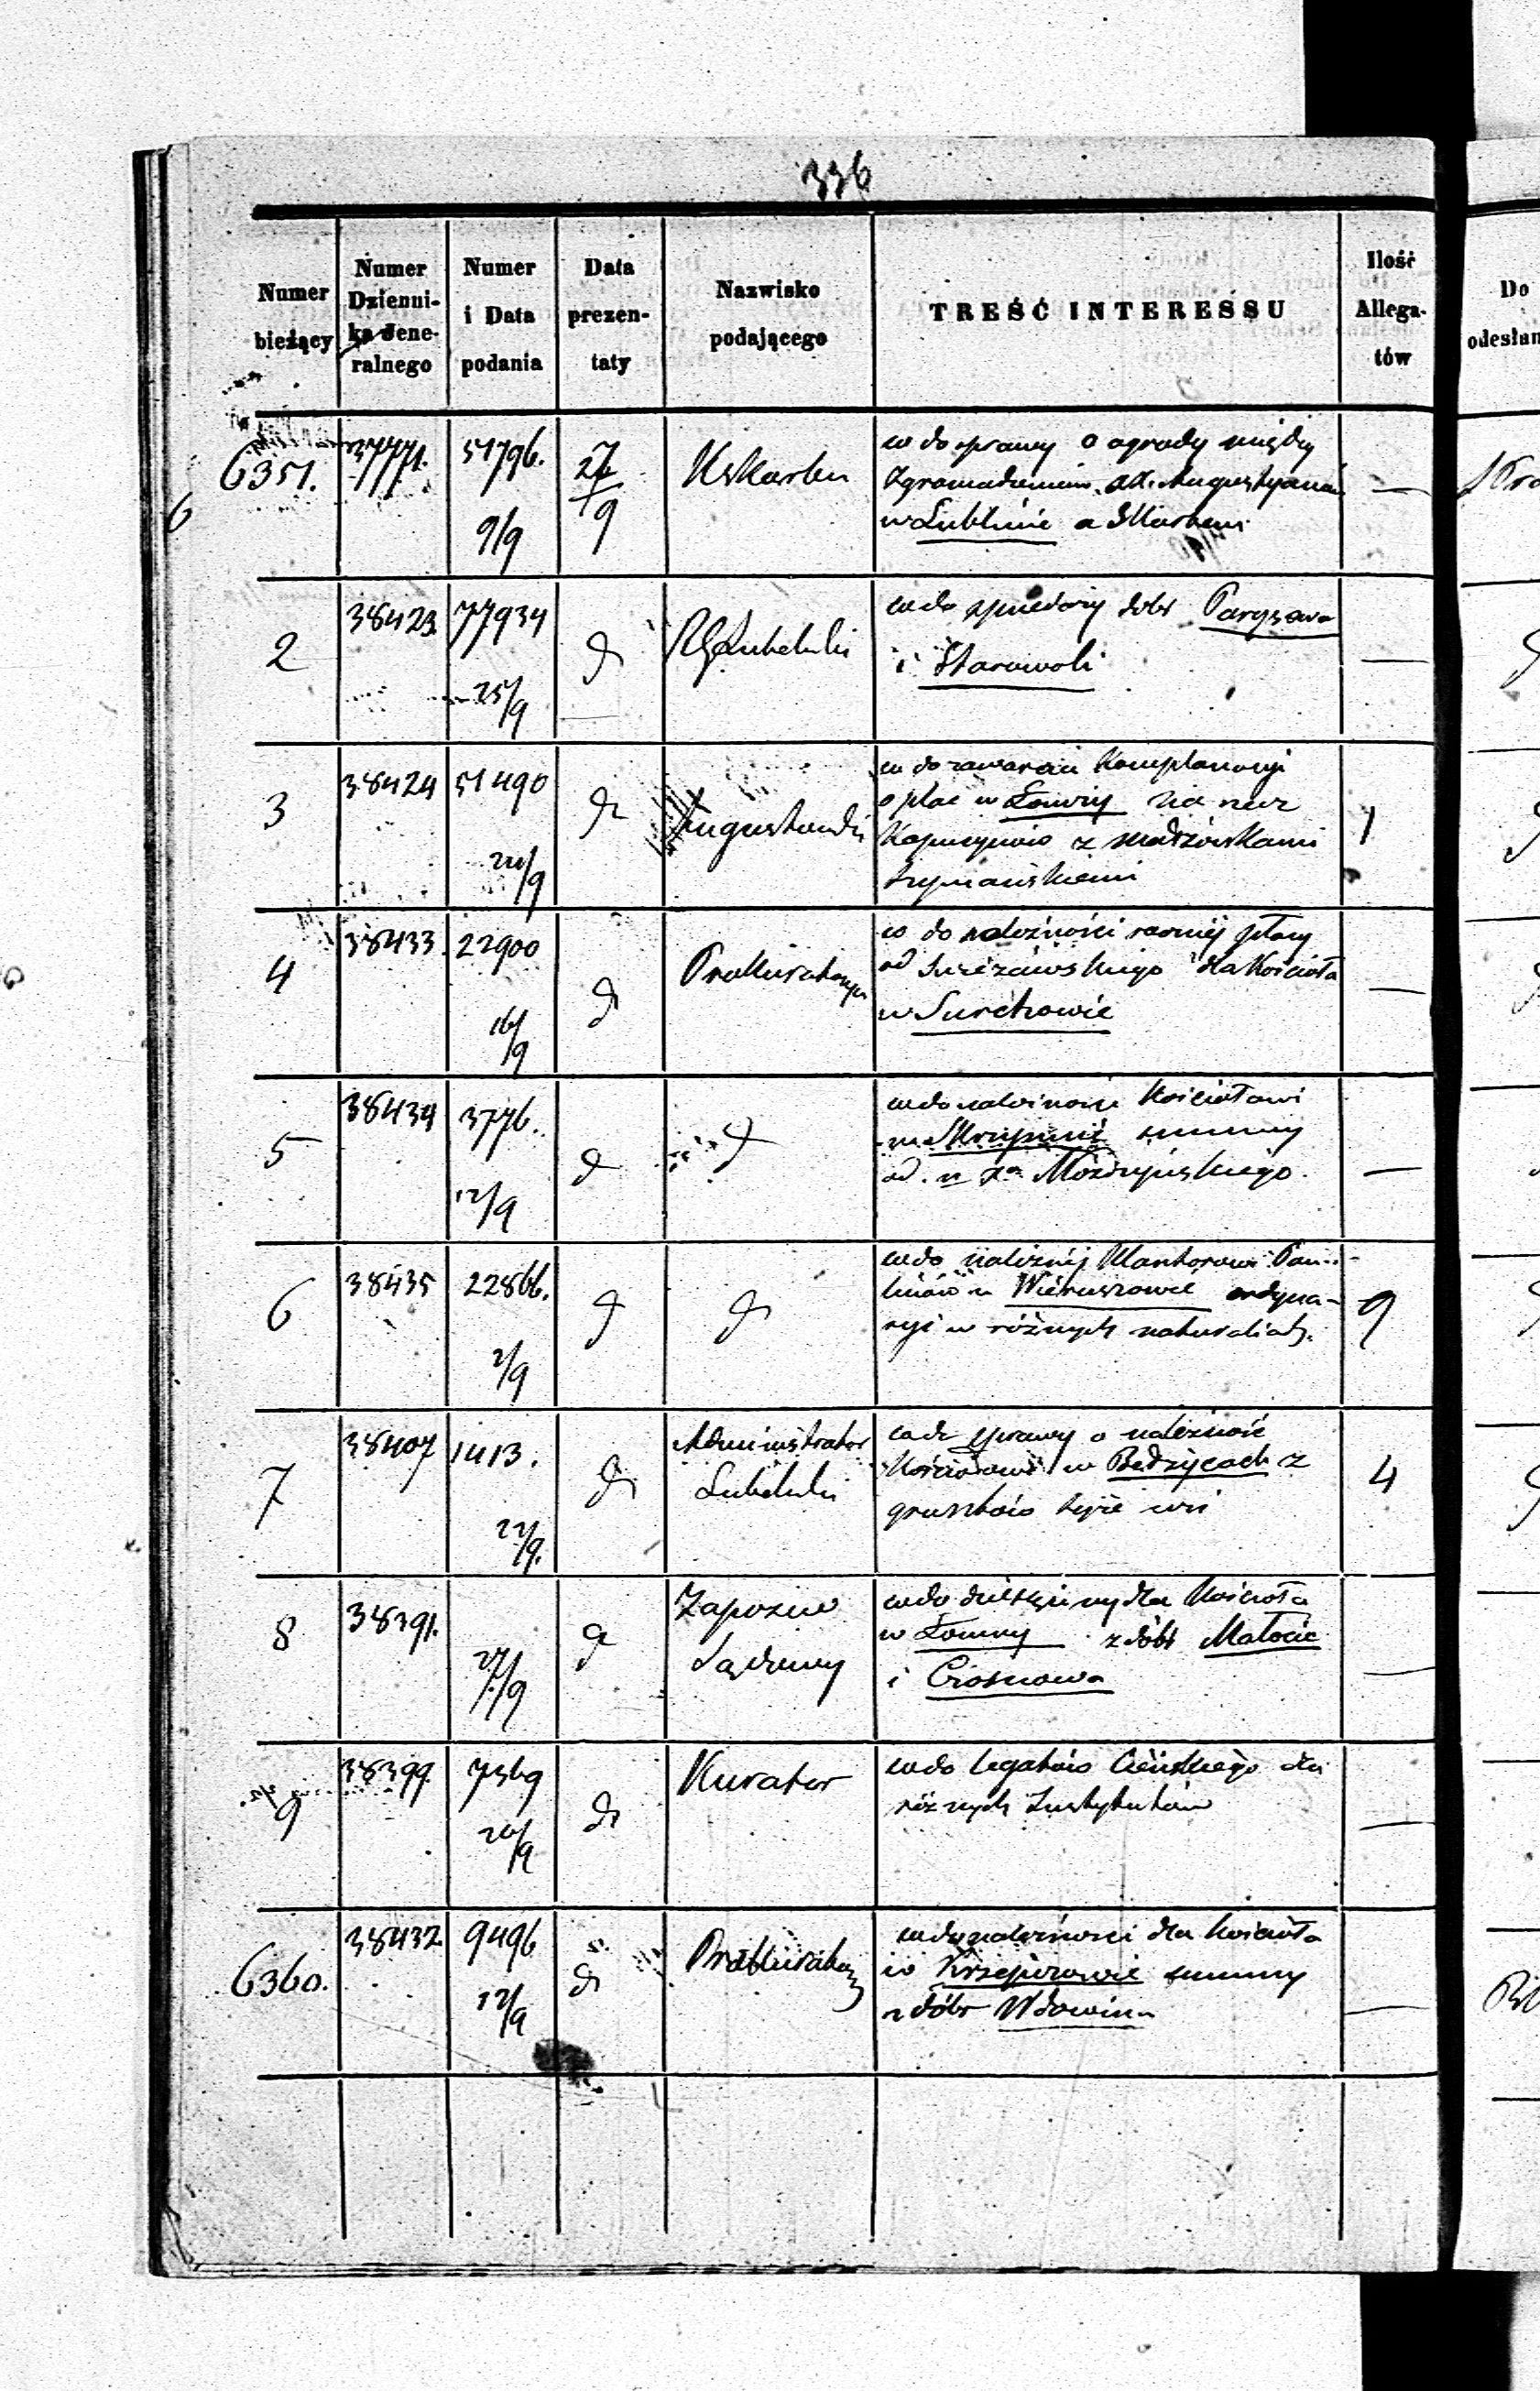 336
Numer bieżący
Numer Dzienni-ka Jene-ralnego
Numer i Data podania
Data prezen-taty
Nazwisko podającego
TREŚĆ INTERESSU
Ilość Allega-tów
Do odesłan
6351. 37771. 51796. 9/9 27/9 KSkarbu
w do sprawy o ogrody między
Zgromadzeniem XX. Augustyanów
w Lublinie a Skarbem
—
2 38423. 77934 25/9 d RGLubelski
w do sprzedaży dóbr Parysowa
i Starowoli
—
3 38424 51490 20/9 d Augustowski
w do zawarcia Komplanacyi
o plac w Łomży na rzecz
Kapucynów z małżonkami
Szymańskiemi
1
4 38433. 22900 16/9 d Prokuratorya
w do należności rocznéj płacy
od dla Kościoła
w Surchowie
—
5 38434 3776. 12/9 d d
w do należności Kościołowi
w summy
od
—
6 38435 22866. 2/9 d d
w do należnéj Klasztorowi Pau-
linów w Wieruszowie ordyna-
ryi w różnych naturaliach.
9
7 38407 1413. 22/9. d Administrator
Lubelski
w do sprawy o należność
Kościołowi w Bedrzycach z
gruntów tejże wsi
4
8 38391. 27/9 d Zapozew
Sądowy
w do dziesięciny dla Kościoła
w Łomny z dóbr Małocic
i Ciosnowa
—
9 38399. 7369 20/9 d Kurator
w do legatów Cieńskiego dla
różnych Instytutów
—
6360. 38432. 9496 12/9 d Prokuratorya
w do należności dla Kościoła
w Krzepczowie summy
z dóbr Wdowina
—